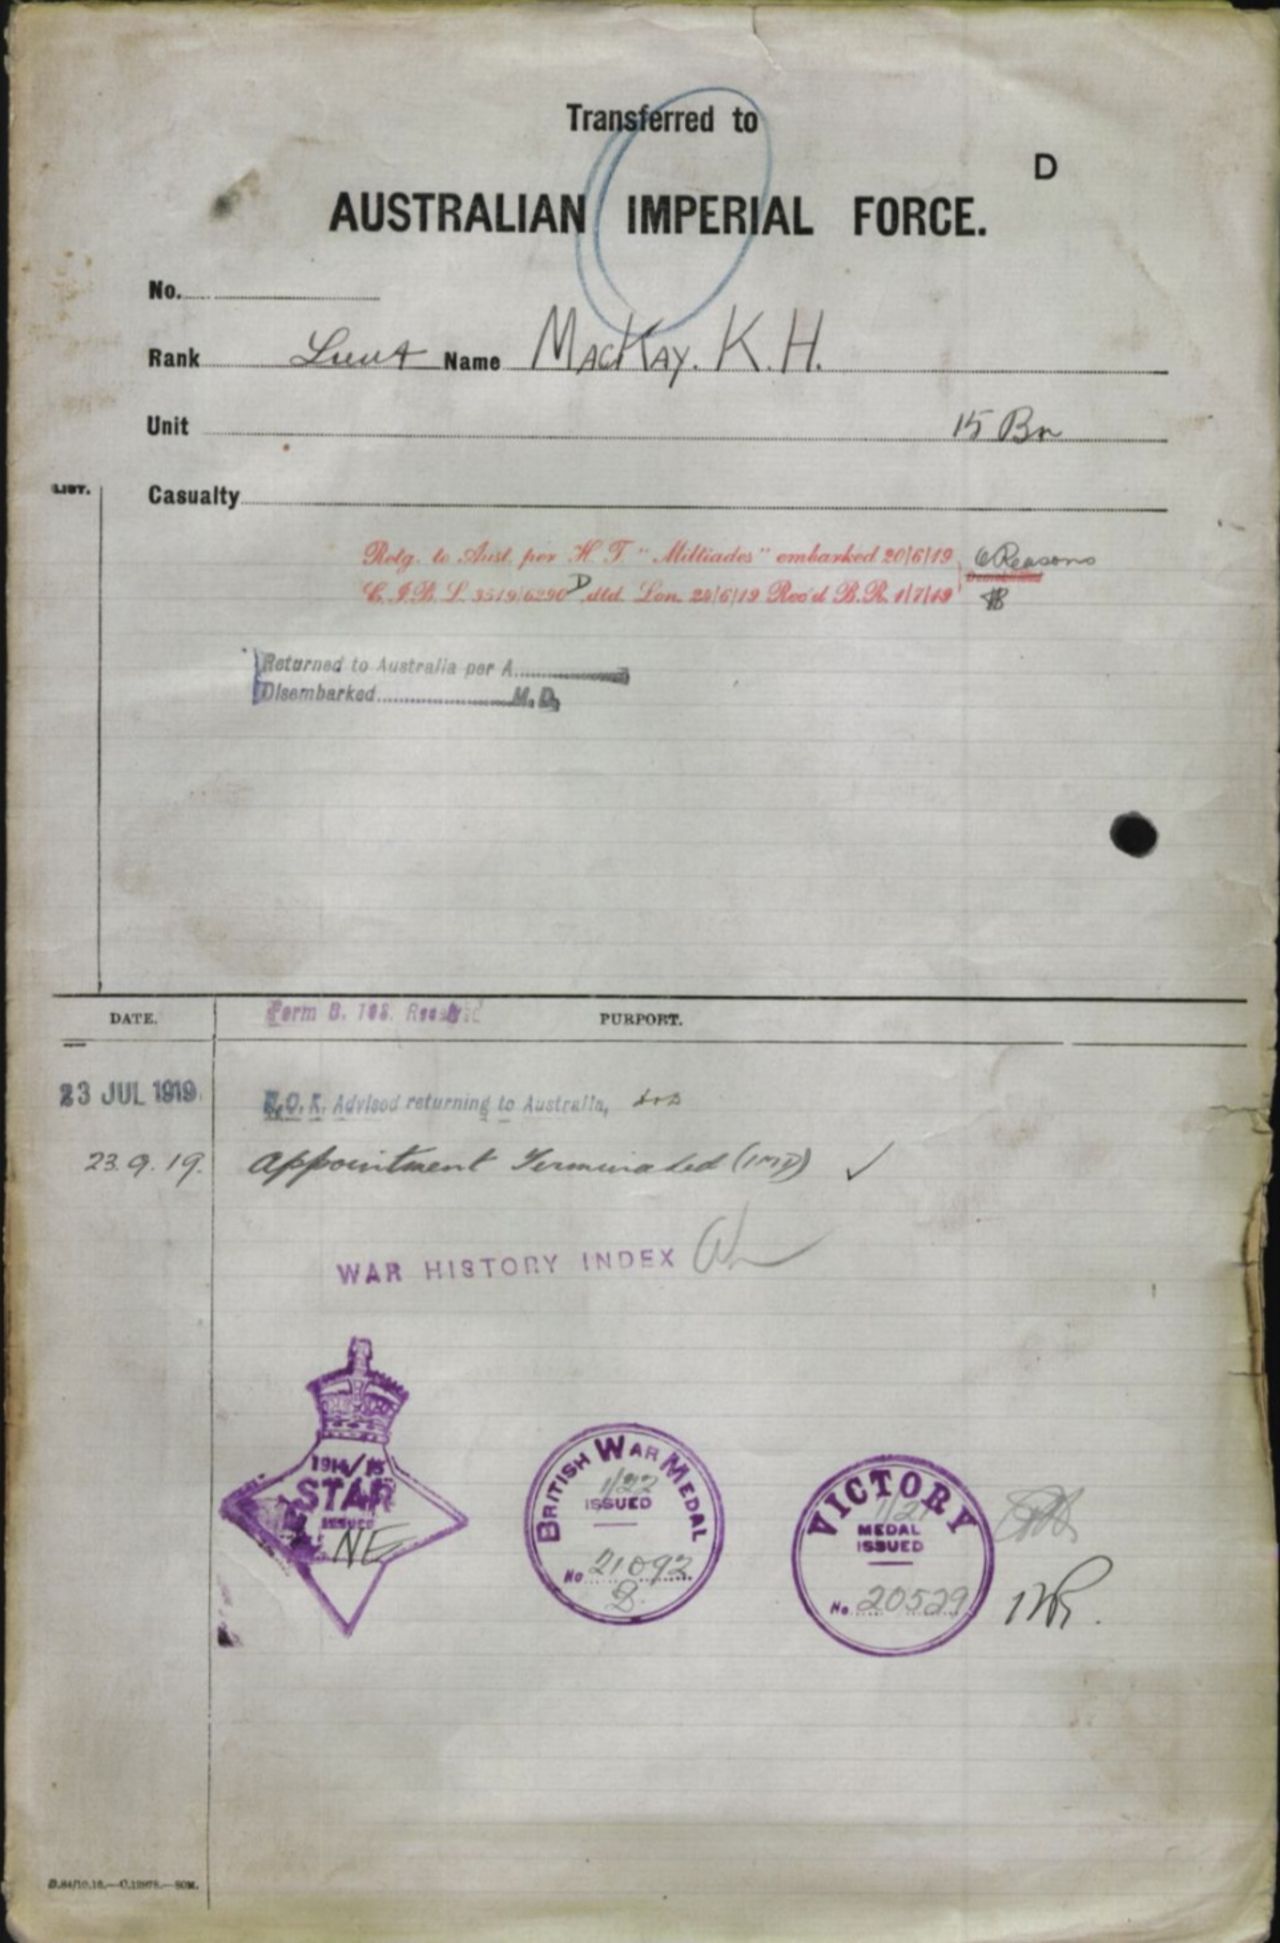 Transferred to
D
AUSTRALIAN IMPERIAL FORCE.
No.
Rank Lieut Name MacKay. K. H.
Unit 15 Bn
LIST.
Casualty
Retg. to Aust. per H. T. "Miltiades" embarked 20/6/19 Reasons
C. I. B. L 3519/6290 D dtd. Lon. 24/6/19 Rec'd B.R. 1/7/19
Returned to Australia per A
Disembarked M. D.
Form B. 103. Received
DATE. PURPORT.
23 JUL 1919 N.O.K. Advised returning to Australia,
23.9.19. Appointment Terminated (1MD)
WAR HISTORY INDEX
1914/15
STAR
ISSUED
NE
BRITISH WAR MEDAL
1/22
ISSUED
No 21092
VICTORY
MEDAL
ISSUED
No. 20529